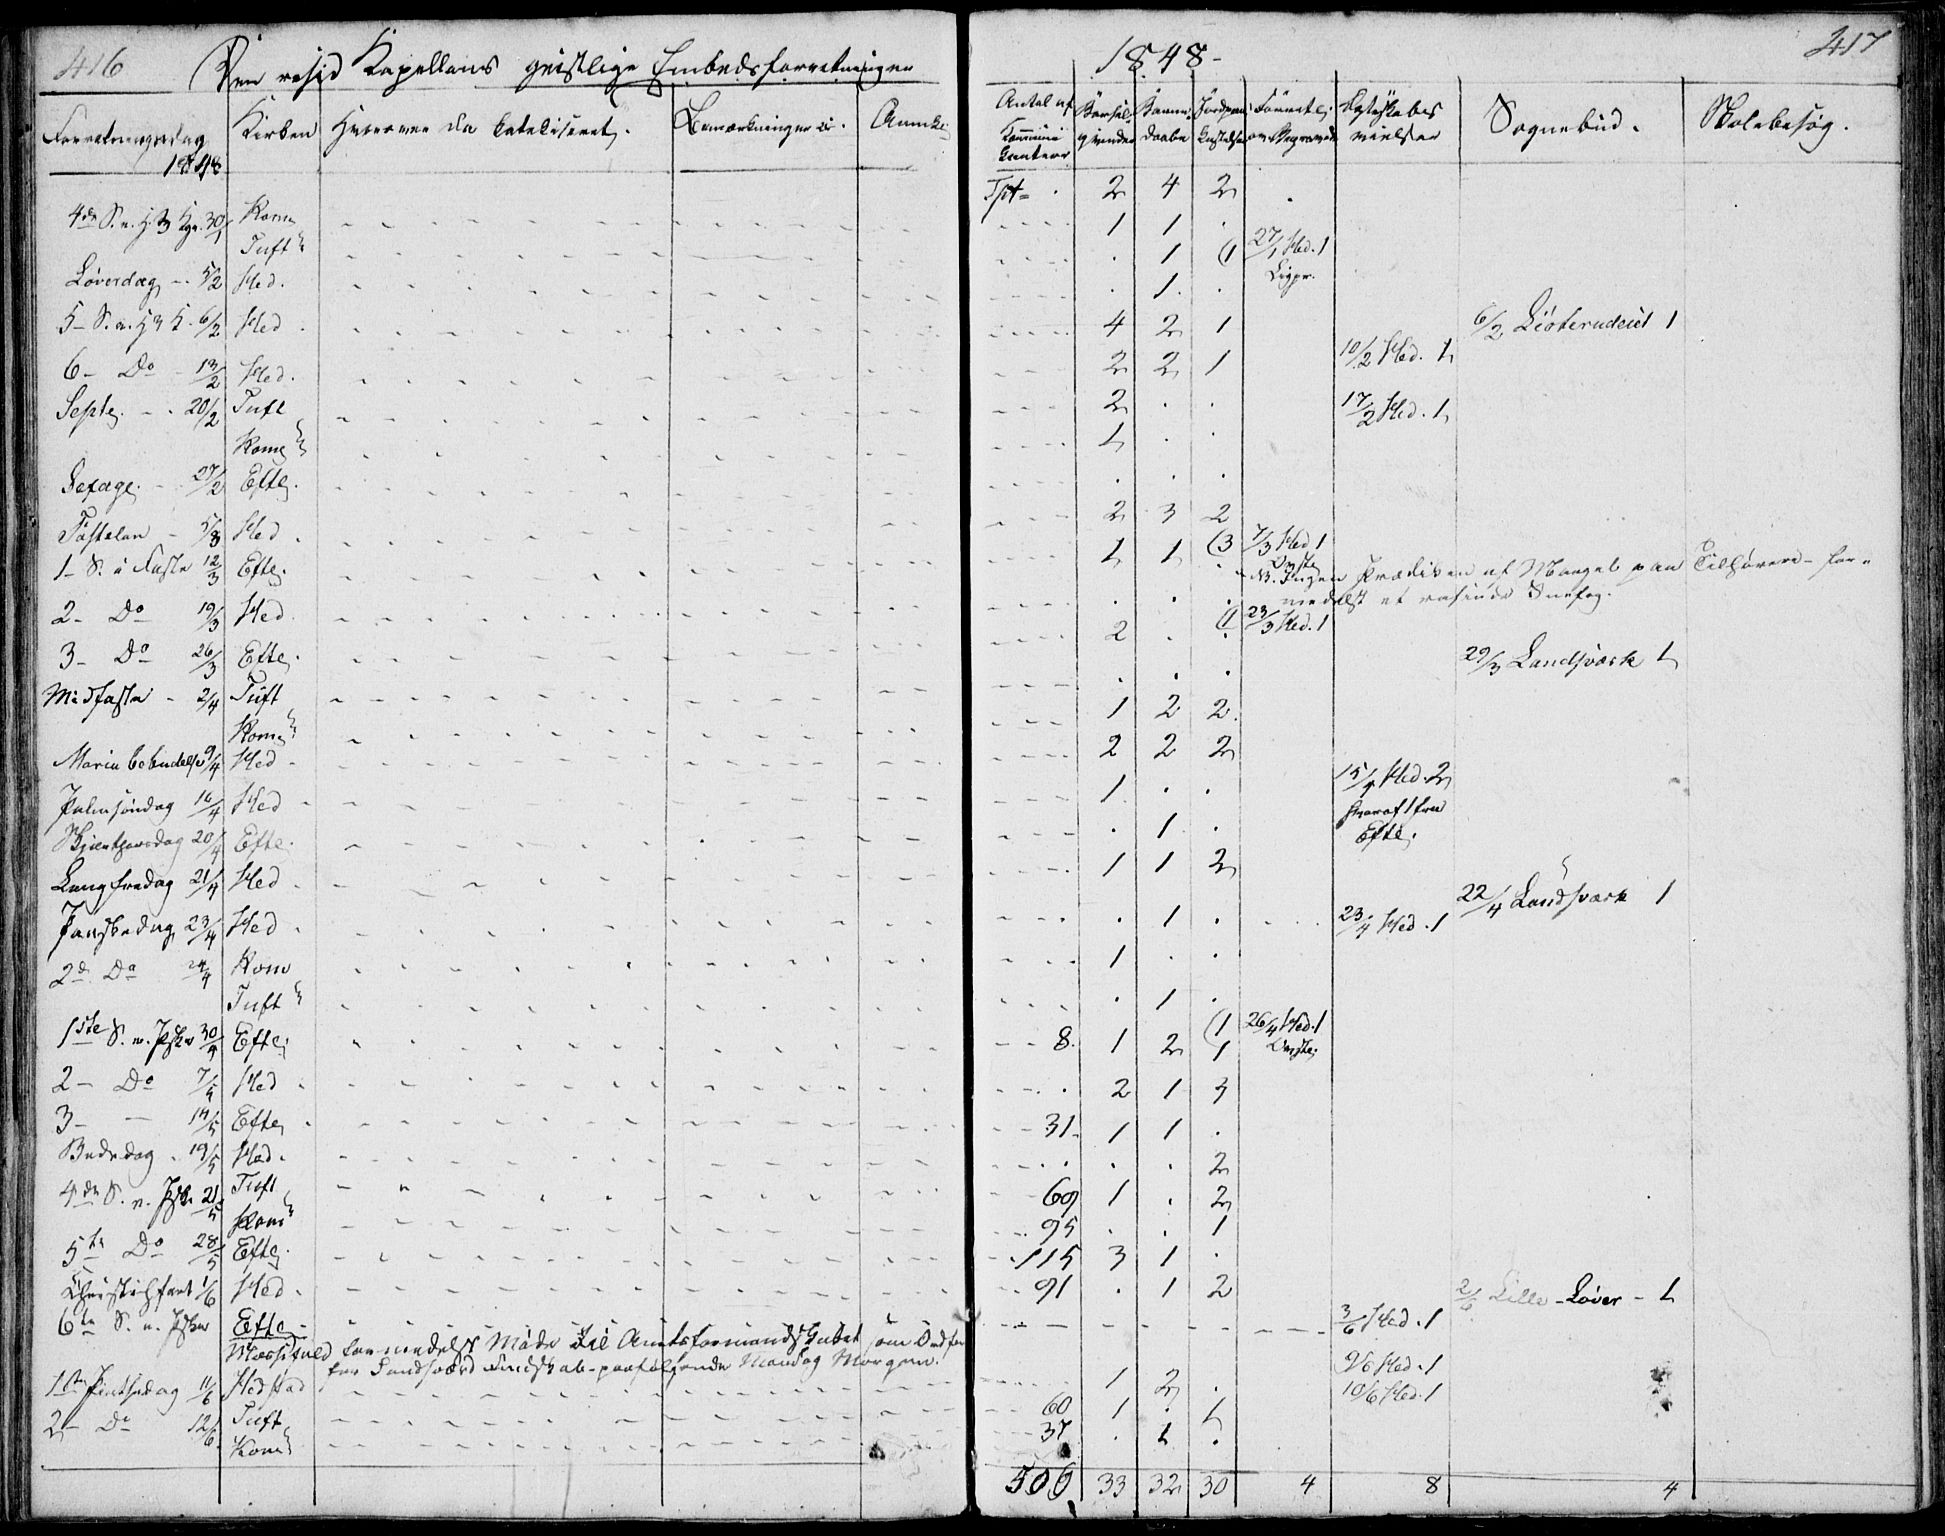 416 Den resid Kapellans geistlige Embedsforretninger
1848- 417
Forretningsdag 1848 | Kirken | Hvorover da Catekiseret. | Bemærkninger | Anmke | Antal af Kommunikantere | Barselqvinder | Barnedaabe | Jordpaakastelse | Ægteskabs vielser | Sognebud. | Skolebesøg.
Tpt= . 2 4 2 .
4de S. e. H. 3 Kgr. 30/1 Kom 1 1 .
Tuft . 1 (1 27/1 Hed. 1 Ligpr.
Løverdag 5/2 Hed. . 1 .
5- S. e. H 3 K. 6/2 Hed. 4 2 1 6/2 1
6- Do 13/2 Hed. 2 2 1 10/2 Hed. 1
Septg. 20/2 Tuft 2 . . 17/2 Hed. 1
Komg 1 . .
Sexage. 27/2 Efteg. . . .
Fastelan 5/3 Hed. 2 3 2
1- S. i Faste 12/3 Efteg. 1 1 (3 7/3 Hed 1
NB. Ingen Prædiken af Mangel paa Tilhørere- for-
medelst et rasende Snefog.
2- Do 19/3 Hed. 2 . (1 23/3 Hed. 1
3- Do 26/3 Efteg. . . . 29/3 Landsværk 1
Midfaste 2/4 Tuft 1 2 2
Komg 2 2 2
Maria bebudelse 9/4 Hed 1 . . 15/4 Hed. 2
Palmsøndag 16/4 Hed . 1 . hvoraf 1 fra Efteg.
Skjærthorsdag 20/4 Efteg. 1 1 2
Langfredag 21/4 Hed . 1 . 23/4 Hed. 1 22/4 Landsværk 1
Paaskedag 23/4 Hed. 1 . .
2d Do 24/4 Kom . 1 .
Tuft (1 26/4 Hed. 1
1ste S. e. Pske 30/4 Efteg 8. 1 2 1
2- Do 7/5 Hed . 2 1 3
3- — 14/5 Efteg 31. 1 1 .
Bededag 19/5 Hed. . . . 2
4de S. e. Pske 21/5 Tuft 69 1 . 2
Kom 95 . . 1
5te Do 28/5 Efteg. 115 3 1 .
Christi Hfart 1/6 Hed. 91 . 1 2 2/6 Lille-Løver - 1
6te S. e. Pske Efteg 3/6 Hed. 1
Messefald formedelst Møde til Amtsformandskabet som Ordfør
for Sandsværd Fmdskab- paafølgende Mandag Morgen. 9/6 Hed. 1
1ste Pintsedag 11/6 Hedstad 1 2 . 10/6 Hed. 1
2- Do 12/6 Tuft 60 1 . 1
Kom 37 . 1 .
506 33 32 30 4 8 4